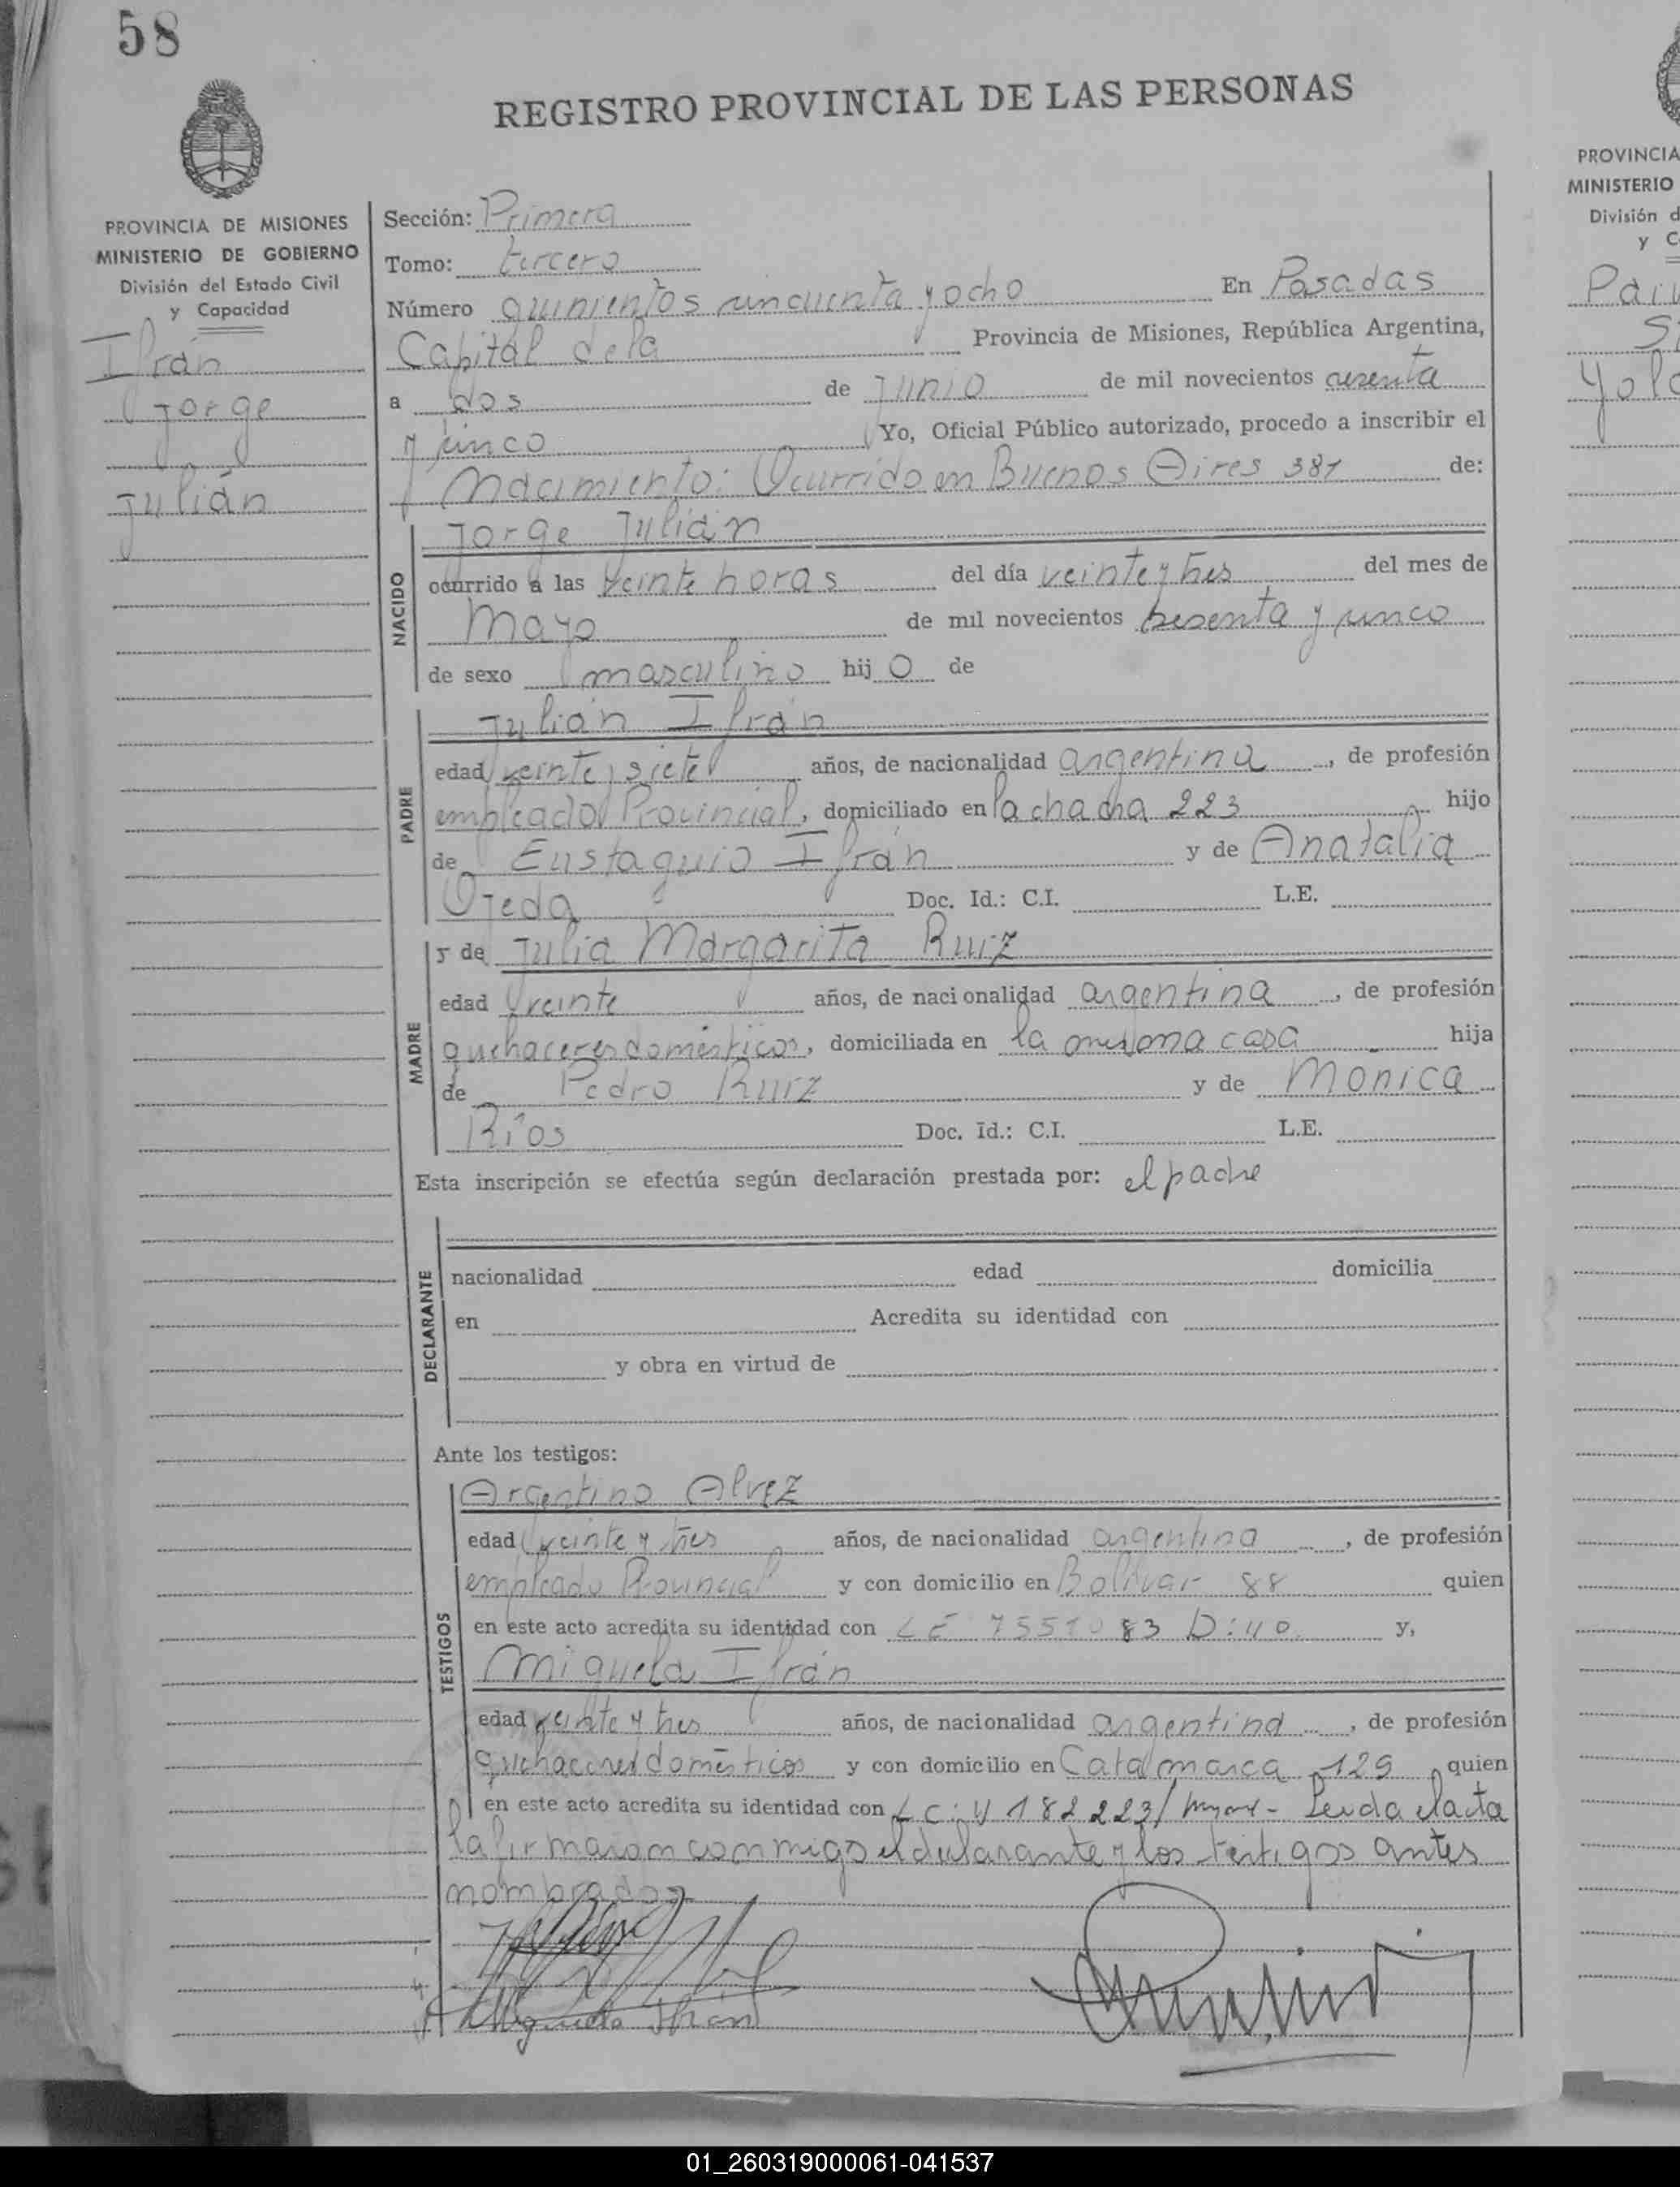 58
REGISTRO PROVINCIAL DE LAS PERSONAS
PROVINCIA DE MISIONES
MINISTERIO DE GOBIERNO
División del Estado Civil
y Capacidad
Ifrán
Jorge
Julián
Sección: Primera
Tomo: tercero
Número quinientos cincuenta y ocho En Posadas
Capital de la Provincia de Misiones, República Argentina,
a dos de Junio de mil novecientos sesenta
y cinco Yo, Oficial Público autorizado, procedo a inscribir el
Nacimiento: Ocurrido en Buenos Aires 381 de:
NACIDO
Jorge Julián
ocurrido a las veinte horas del día veinte y tres del mes de
Mayo de mil novecientos sesenta y cinco
de sexo masculino hij o de
PADRE
Julián Ifrán
edad veinte y siete años, de nacionalidad argentina, de profesión
empleado Provincial, domiciliado en la chacra 223 hijo
de Eustaquio Ifrán y de Anatalia
Ojeda Doc. Id.: C.I. L.E.
MADRE
y de Julia Margarita Ruiz
edad veinte años, de nacionalidad argentina, de profesión
quehaceres domésticos, domiciliada en la misma casa hija
de Pedro Ruiz y de Mónica
Ríos Doc. Id.: C.I. L.E.
Esta inscripción se efectúa según declaración prestada por: el padre
DECLARANTE
nacionalidad edad domicilia
en Acredita su identidad con
y obra en virtud de
Ante los testigos:
TESTIGOS
Argentino Alvez
edad veinte y tres años, de nacionalidad argentina, de profesión
empleado Provincial y con domicilio en Bolivar 88 quien
en este acto acredita su identidad con LE 7551083 D:40. y,
Miguela Ifrán
edad veinte y tres años, de nacionalidad argentina, de profesión
quehaceres domésticos y con domicilio en Catamarca 129 quien
en este acto acredita su identidad con L C: 4182.223/ Leida el acta
la firmaron conmigo el declarante y los testigos antes
nombrados
Miguela Ifrán
PROVINCIA
MINISTERIO
División d
y C
01_260319000061-041537